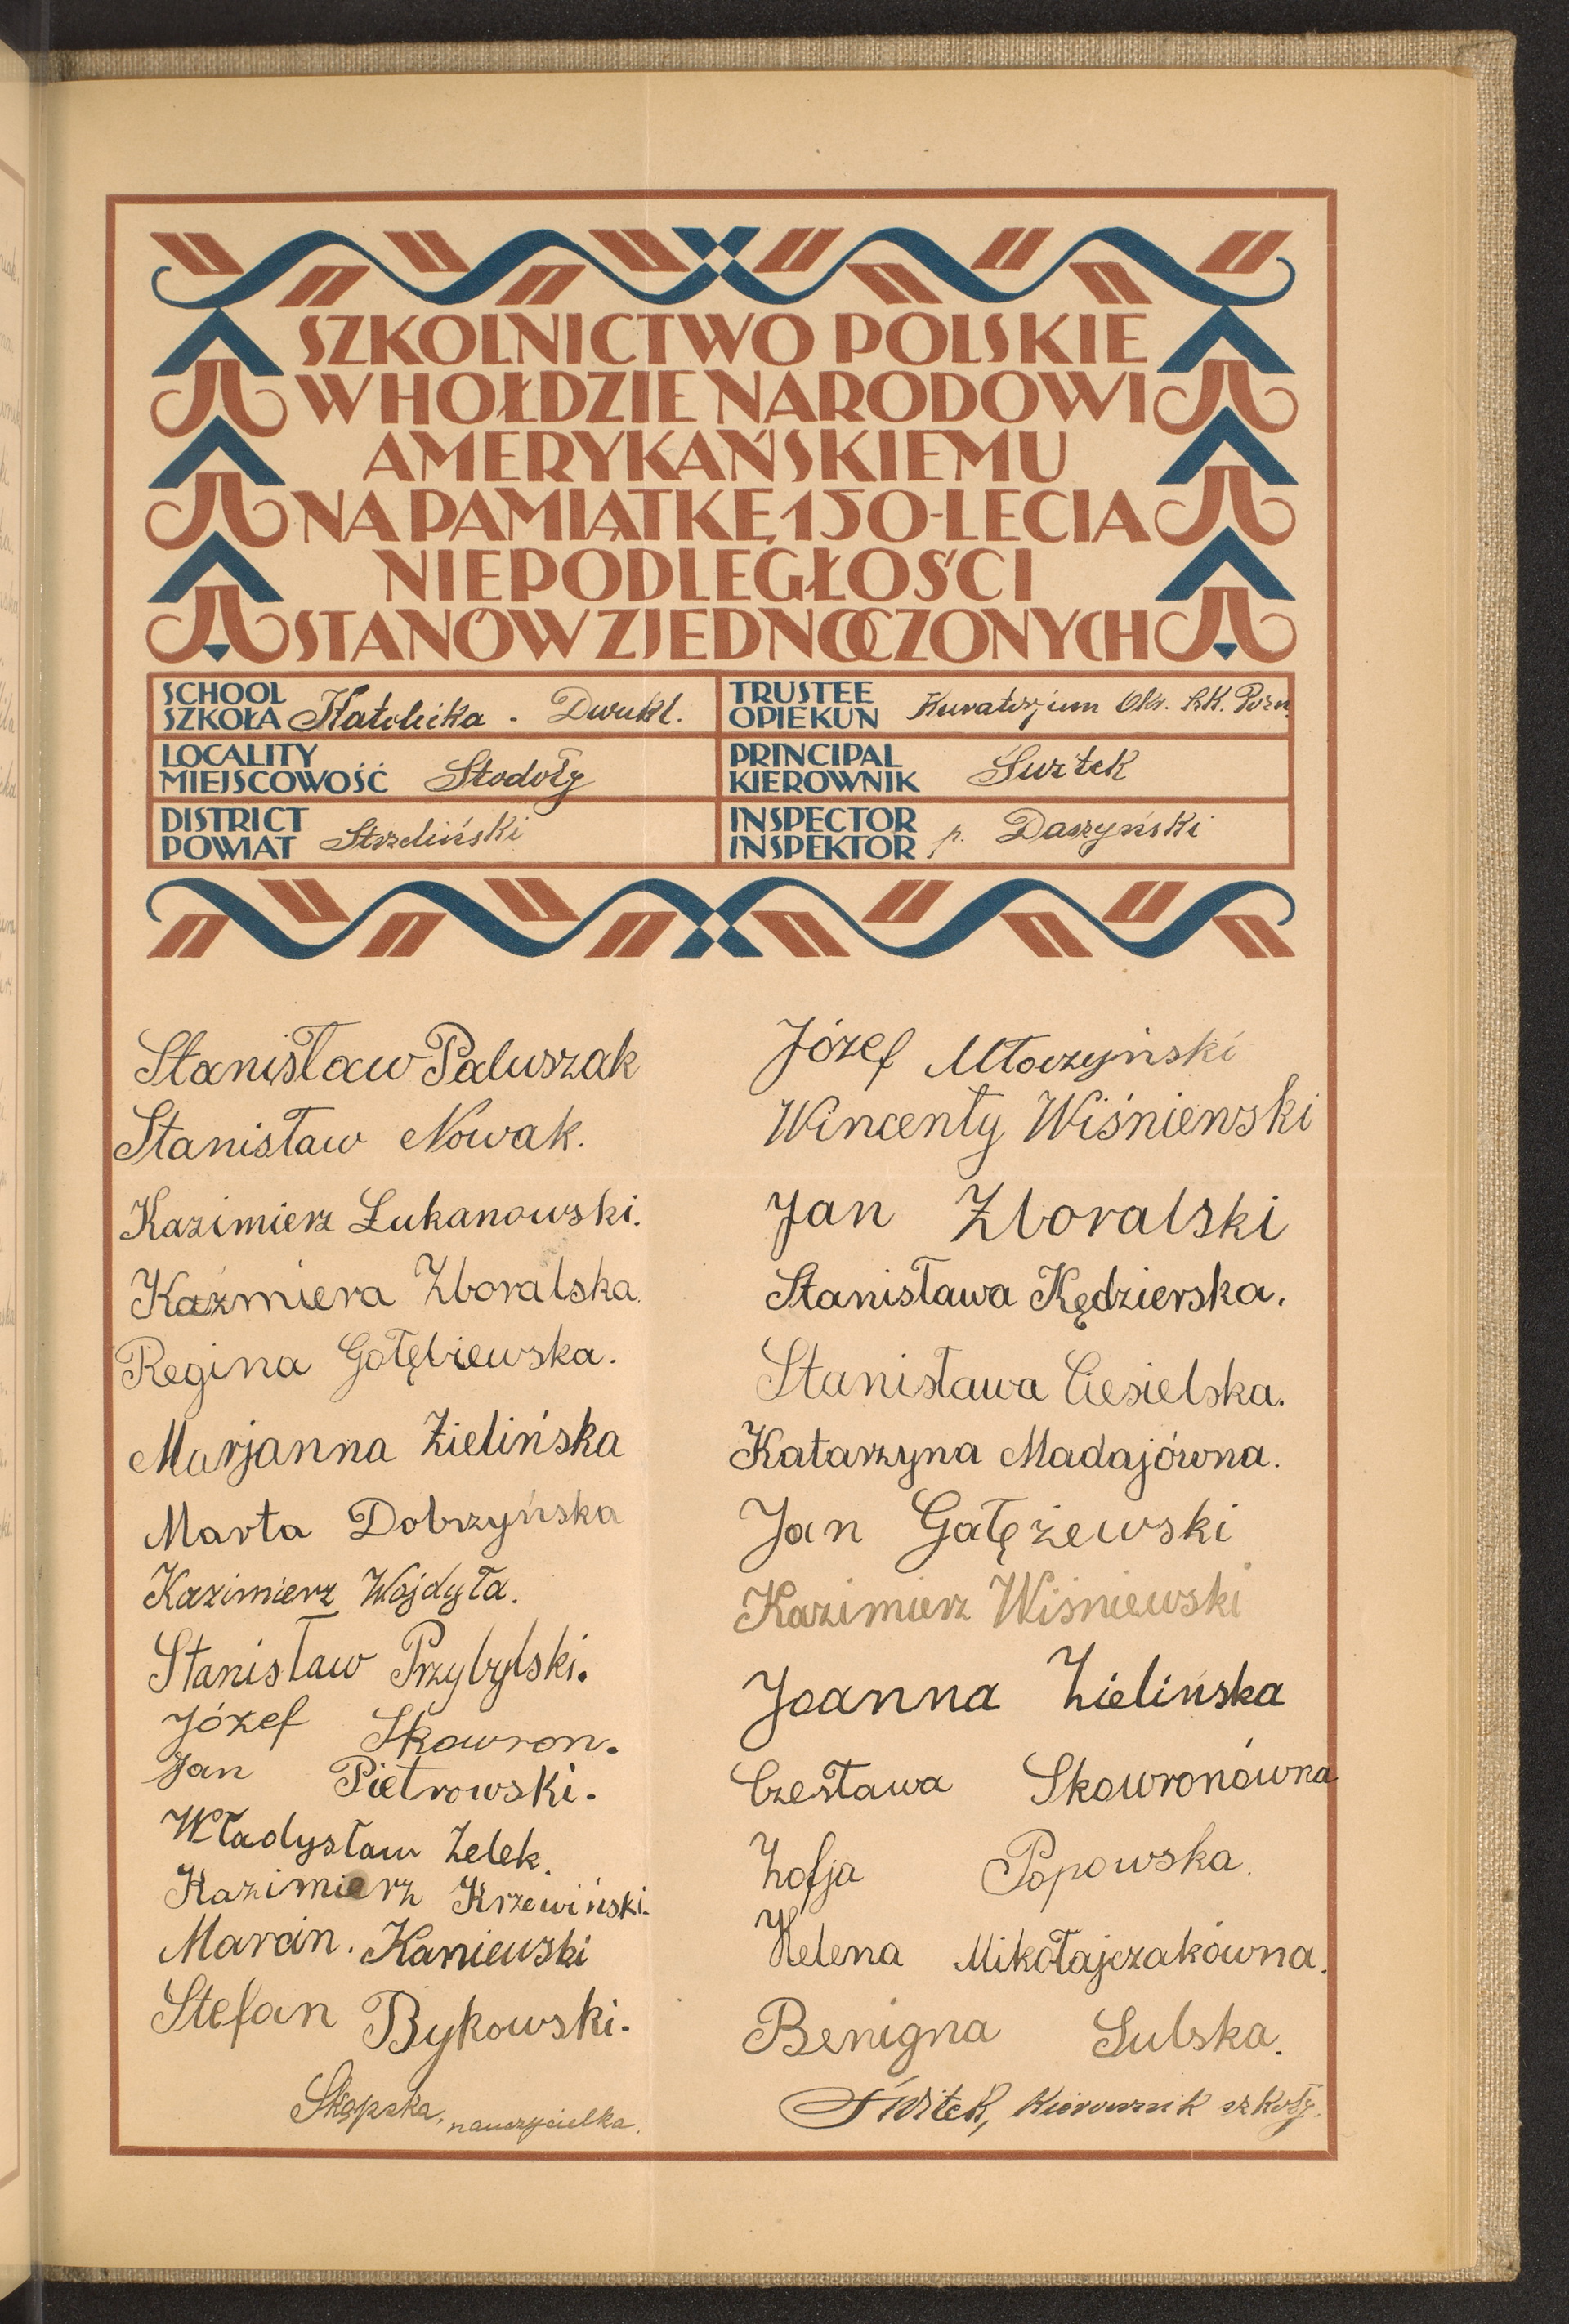 SZKOLNICTWO POLSKIE
W HOŁDZIE NARODOWI
AMERYKAŃSKIEMU
NA PAMIĄTKĘ 150-LECIA
NIEPODLEGŁOŚCI
STANÓW ZJEDNOCZONYCH
SCHOOL
SZKOŁA Katolicka - Dwukl.
TRUSTEE
OPIEKUN Kuratorjum Okr. Szk. Pozn.
LOCALITY
MIEJSCOWOŚĆ Stodoły
PRINCIPAL
KIEROWNIK
DISTRICT
POWIAT Strzeliński
INSPECTOR
INSPEKTOR p. Daszyński
Stanisław Paluszak
Stanisław Nowak.
Kazimierz Łukanowski.
Kaźmiera Zboralska.
Regina Gołębiewska.
Marjanna Zielińska
Marta Dobrzyńska
Kazimierz Wojdyła.
Stanisław Przybylski.
Józef Skowron.
Jan Pietrowski.
Władysław Zelek.
Kazimierz Krzewiński.
Marcin. Kaniewski
Stefan Bykowski.
Skąpska, nauczycielka.
Józef Młoczyński
Wincenty Wiśniewski
Jan Zboralski
Stanisława Kędzierska.
Stanisława Ciesielska.
Katarzyna Madajówna.
Jan Gałężewski
Kazimierz Wiśniewski
Joanna Zielińska
Czesława Skowronówna
Zofja Popowska.
Helena Mikołajczakówna.
Benigna Sulska.
Świtek, Kierownik szkoły.